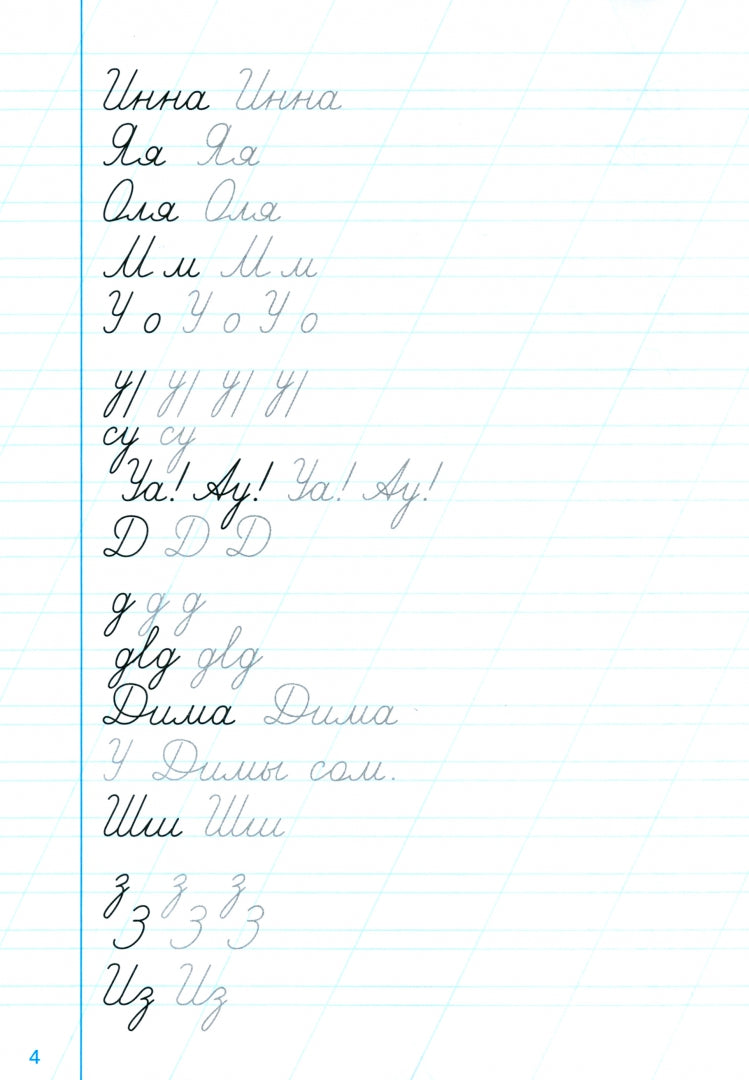 Инна Инна
Яя Яя
Оля Оля
М м М м
У о У о У о
у/ у/ у/ у/
су су
Уа! Ау! Уа! Ау!
Д Д Д
д д д
двд двд
Дима Дима
У Димы сом.
Шш Шш
з з з
З З З
Из Из
4